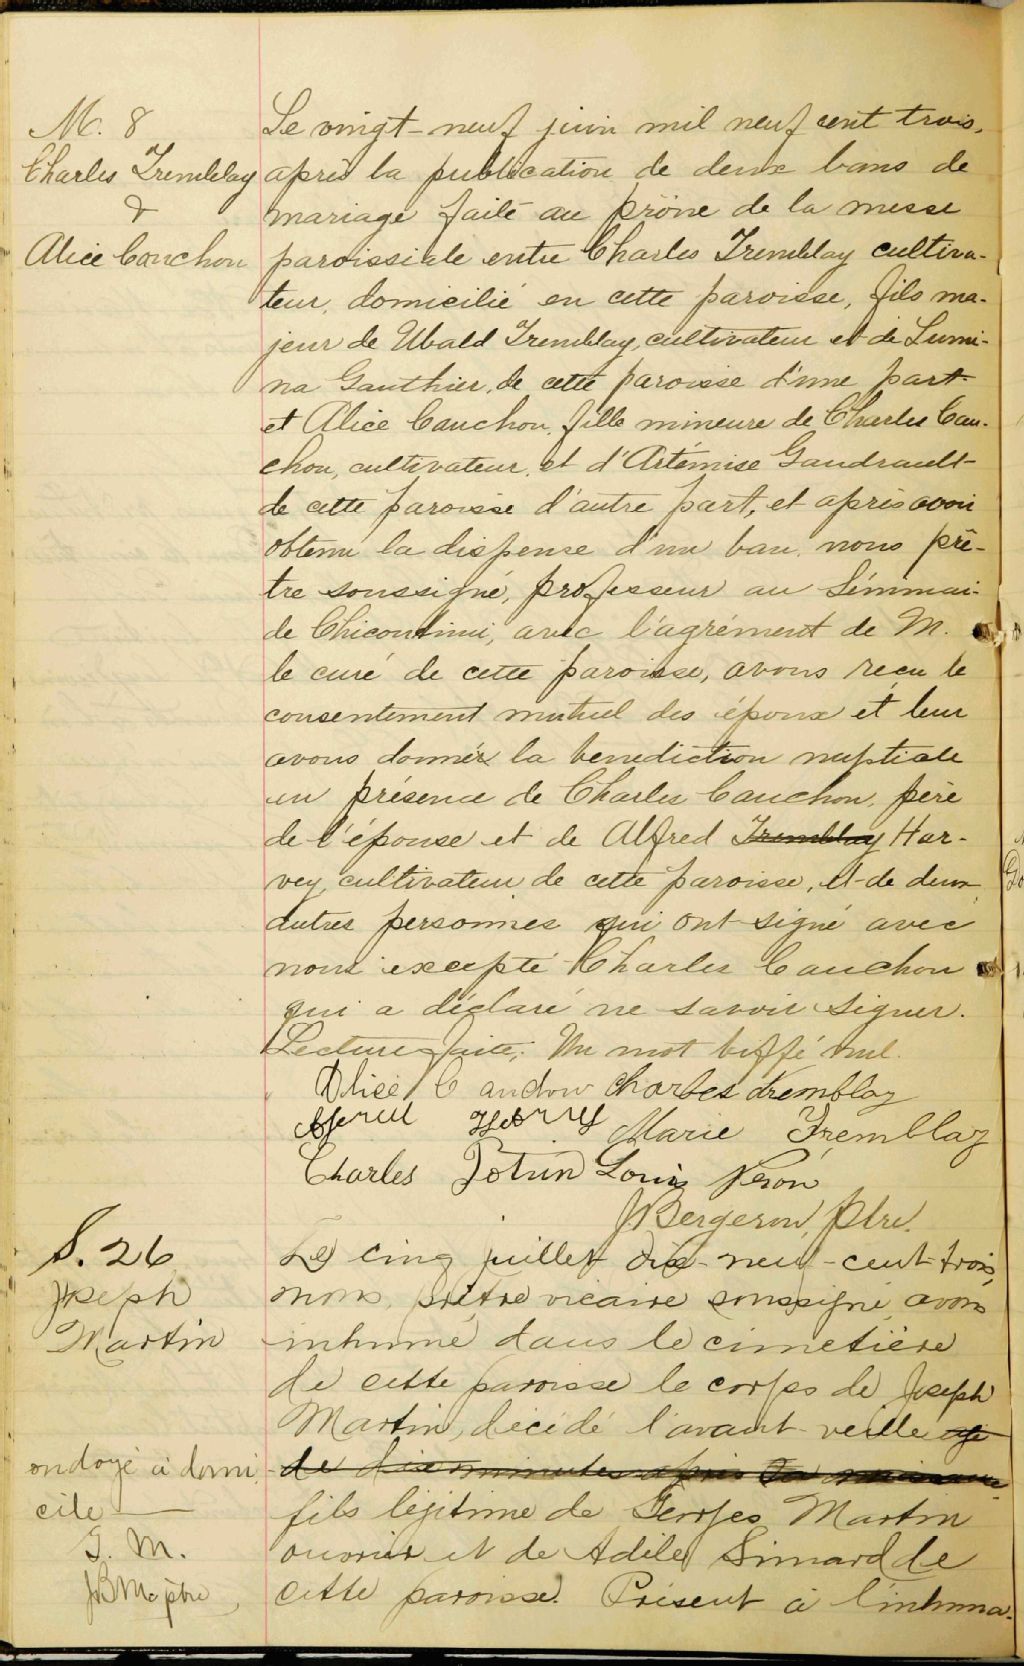 M. 8
Charles Tremblay
&
Alice Cauchon
Le vingt-neuf juin mil neuf cent trois,
après la publication de deux bans de
mariage faite au prône de la messe
paroissiale entre Charles Tremblay cultiva-
teur, domicilié en cette paroisse, fils ma-
jeur de Ubald Tremblay, cultivateur et de Lumi-
na Gauthier, de cette paroisse d'une part
et Alice Cauchon, fille mineure de Charles Cau-
chon, cultivateur, et d'Artémise Gaudreault
de cette paroisse d'autre part, et après avoir
obtenu la dispense d'un ban, nous prê-
tre soussigné, professeur au Séminai-
de Chicoutimi, avec l'agrément de M.
le curé de cette paroisse, avons reçu le
consentement mutuel des époux et leur
avons donnée la benediction nuptiale
en présence de Charles Cauchon, père
de l'épouse et de Alfred Tremblay Har-
vey, cultivateur de cette paroisse, et de deux
autres personnes qui ont signé avec
nous excepté Charles Cauchon
qui a déclaré ne savoir signer.
Lecture faite. Un mot biffé nul.
Alice Cauchon Charles tremblay
Marie Tremblay
Charles Potvin Louis Néron
JBergeron, Ptre.
S. 26
Joseph
Martin
Le cinq juillet dix-neuf-cent-trois,
nous, prêtre vicaire soussigné, avons
inhumé dans le cimetière
de cette paroisse le corps de Joseph
Martin, décédé l'avant-veille agé
de dix minutes après sa naissance
ondoyé à domi
cile
fils légitime de Georges Martin
ouvrier et de Adèle Simard de
cette paroisse. Présent à l'inhuma-